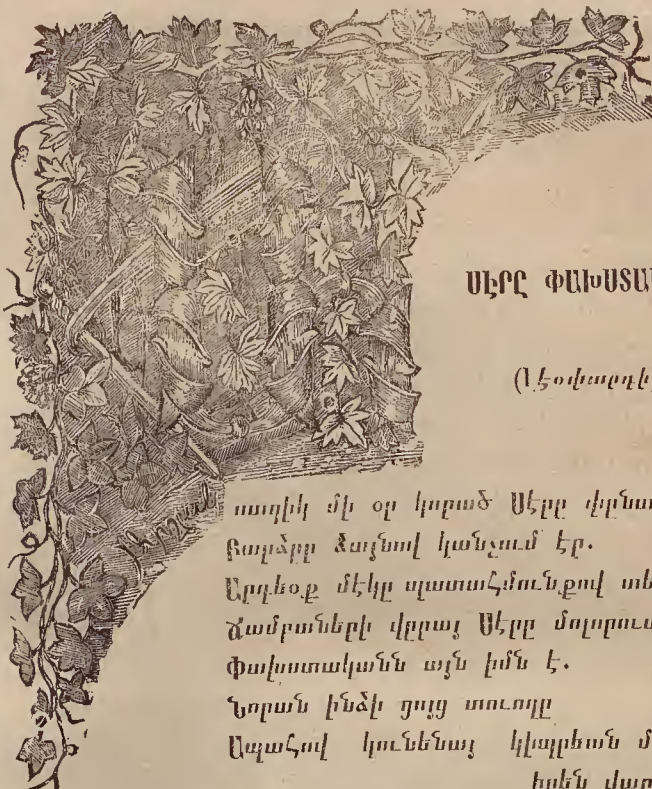 ՍԷՐԸ ՓԱԽՍՏԱ
(Լէօպարդի
աստղիկ մի օր կորած Սէրը փընտ
Բարձրը ձայնով կանչում էր.
Արդեօք մէկը պատահմունքով տե
Ճամբաների վըրայ Սէրը մոլորուս
Փախստականն այն իմն է.
Նորան ինձի ցոյց տուողը
Ապահով կունենայ կիպրեան մ
իրեն վար